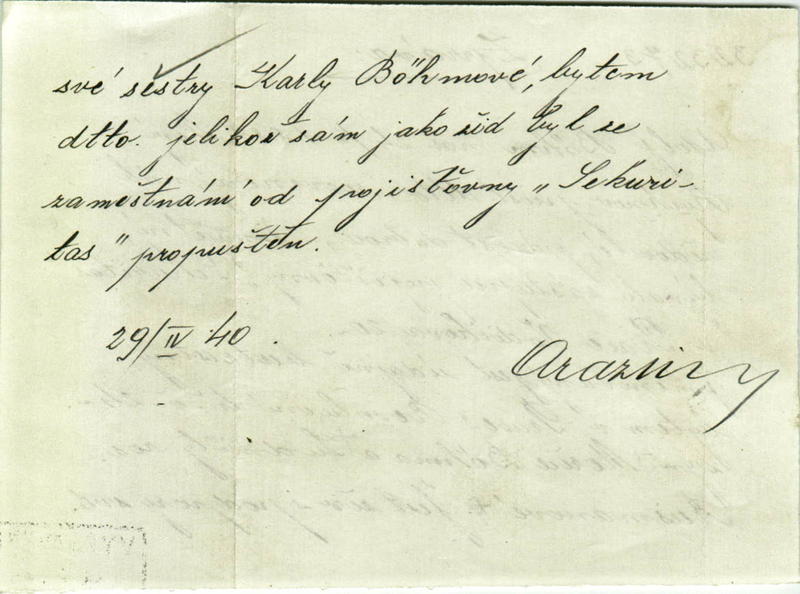 své sestry Karly Böhmové, bytem
dtto. jelikož sám jako žid byl ze
zaměstnání od pojišťovny „Sekuri-
tas" propuštěn.
29/IV 40.